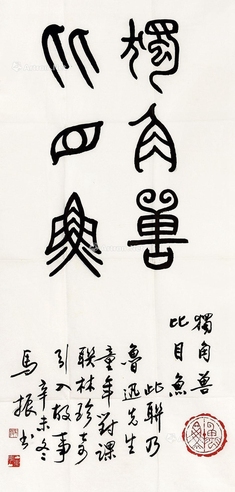 獨角獸
比目魚
獨角兽
比目魚
此聯乃
魯迅先生
童年對課
聯林珍奇
引入故事
辛未冬
馬振书